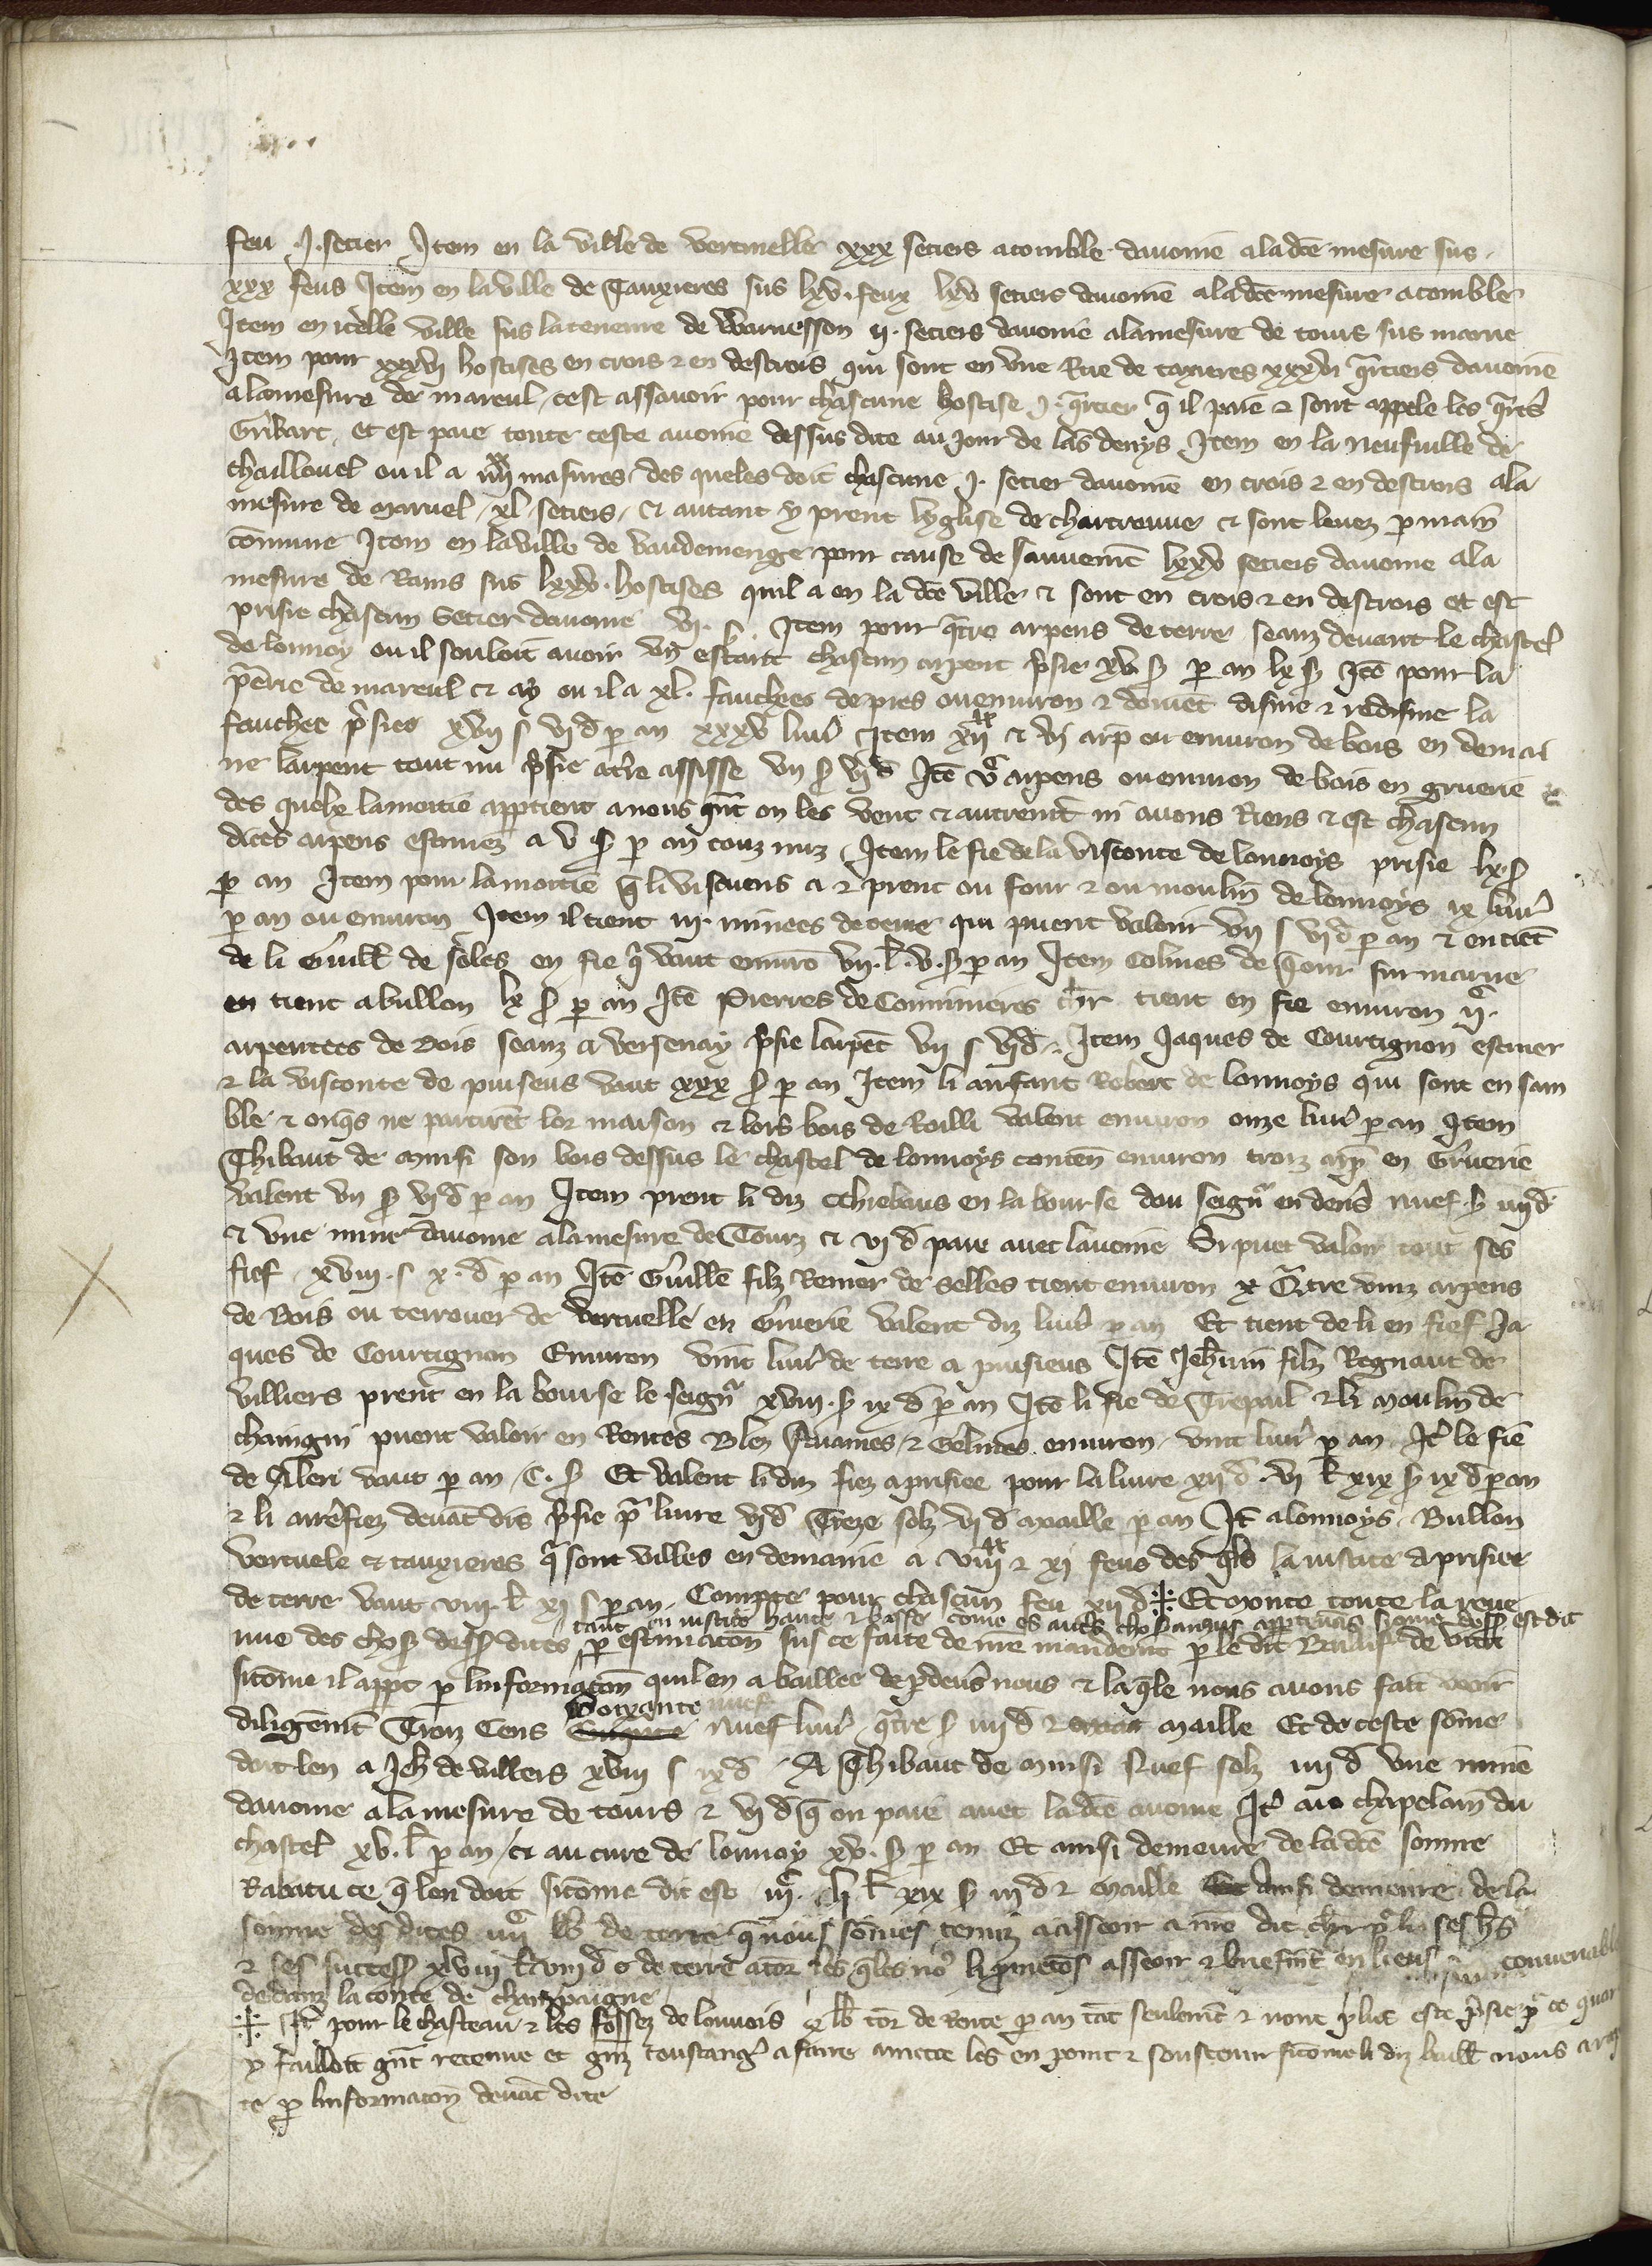 feu .J. setier Item en la ville de vertuelle xxx setiers acomble davoine aladce mesure sus
xxx feus Item en la ville de Tauxieres sus lxv. feux lxv setiers davoine aladce mesure acomble
Item en icelle ville sus la teneure de Warnesson ij. setiers davoine alamesure de tours sus marne
Item pour xxxvj hostises en crois ⁊ en descrois qui sont en une Rue de taxieres xxxvj qrtiers davoine
alamesure de mareul / cest assavoir pour chascune hostise .J. qrtier q il paie ⁊ sont appele les qrts
Gribart, et est paie toute ceste avoine dessus dite au jour de la s denys Item en la neufville de
chaillouel ou il a iiijxx masures / des queles doit chascune .J. setier davoine en crois ⁊ en descrois ala
mesure de maruel / xl. setiers / et autant y prent lyglise de chartreuve et sont levez p main
comune Item en la ville de vaudemenge pour cause de sauvemt lxxv setiers davoine ala
mesure de Rains sus lxxv. hostises quil a en la dce ville et sont en crois ⁊ en descrois et est
prisie chascun setier davoine vj. s. Item pour qtre arpens de terre seanz devant le chastel
de louvoy ou il souloit avoir un estanc chascun arpent prisie xv s p an lx s Ite pour la
prerie de mareul et ay ou il a xl. fauchees de pres ou environ ⁊ doivet disme ⁊ redisme la
fauchee prisiee xvij s vj d p an xxxv livr Item xijxx et vj arp ou environ de bois en demai
ne larpent tout nu prisie atre assisse vij s vj d Ite vc arpens ou environ de bois en gruerie
des quelx la moitie apptient anous qnt on les vent et autremt ni avons Riens ⁊ est chascun
dites arpens estimez a v s p an touz nuz / Item le fie de la visconte de louvoys prisie lx. s
p an Item pour la moitie q li viscuens a ⁊ prent ou four ⁊ ou moulin de louvoys ix livr
p an ou environ Item il tient iij. minees de terre qui puent valoir vij s vj d p an ⁊ en tiet
de li Guill de selles en fie q vaut enviro vij. l. v. s p an Item Colines de Tour sur marne
en tient abullon lx s p an Ite Pierres de Commieres chr tient en fie environ ijc
arpentees de Bois seanz a versenay prisie larpet vij s vj d. Item Jaques de Courtignon escuier
⁊ la visconte de puiseus vaut xxx s p an Item li anfant Robert de louvoys qui sont en sam
ble ⁊ onqs ne partiret lor maison ⁊ lors bois de Roilli valent environ onze livr p an Item
Thibaut de misi son bois dessus le chastel de louvoys conten environ troiz arp en Gruerie
valent vij s vj d p an Item prent li diz Thiebaus en la bourse dou seignr en deners nuef. s iiij d
et une mine davoine alamesure de Tourz et vj d paie avec lavoine Si puet valoir tout ses
fief / xviij. s x. d p an Ite Guille filz Renier de selles tient environ x Qtre vinz arpens
de Bois ou terrouer de vertuelle en Gruerie valent diz livrs p an Et tient de li en fief Ja
ques de Courtignon Environ vint livr de terre a puiseus Ite Jehnin filz Regnaut de
villiers prent en la bourse le seignr xviij. s ix d p an Ite li fie de Trepail ⁊ li moulin de
chaingni puent valoir en Rentes Blez Avaines ⁊ Gelines environ vint livr p an Ite le fie
de Aleri vaut p an / C. s Et valent li diz fiez aprisiee pour la livre xij d. vj l xix s ix d p an
⁊ li arrefiez devat dis prisie pr livre vj d Treze solz vj d ⁊ maille p an It alouvoys, Bullon
vertuele et tauxieres q sont villes en demaine a viijxx ⁊ xj feus des qls la justice aprisiee
de terre vaut viij. l xj s p an. Compte pour chascun feu xij d ⁜ Et monte toute la reve
tant en justice haute ⁊ basse come es autrs choses apptenans si come dess est dit
nue des choses dess dites p estimacon sus ce faite de nre mandemt p le dit Baillif de vitri
sicome il appt p linformacon quil en a baillee de p devs nous ⁊ laqle nous avons fait veoir
Soixante nuef
diligemt Trois Cens nuef livr qtre s iiij d ⁊ maille Et de ceste some
doit len a Jeh de villers xviij s ix d / A Thibaut de misi Nuef solz iiij d une mine
davoine alamesure de tours ⁊ vj d q on paie avec la dce avoine It au chapelain du
chastel xv. l p an / et au cure de louvoy xv. s p an Et ainsi demeure de la dce somme
Rabatu ce q len doit sicome dit est iijc. lj l xix s iij d ⁊ maille Ainsi demeure de la
somme des dites iiijc lb de terre q nous somes tenuz a asseoir a nre dit chr pr li ses hrs
⁊ ses success xlviij l viij d o de terre ator les qles no li prmetos asseoir ⁊ briefmt en lieus convenabl
dedanz la conte de champaigne
⁜ It pour le chasteau ⁊ les fossez de louvois x lb tor de Rente p an tat seulemt ⁊ nont plus este prisie pr ce quar
y failloit gnt retenue et gnz coustanges a faire mettre les en point ⁊ soustenir sicome li diz baill nous a rap
te p linformacon devat dite